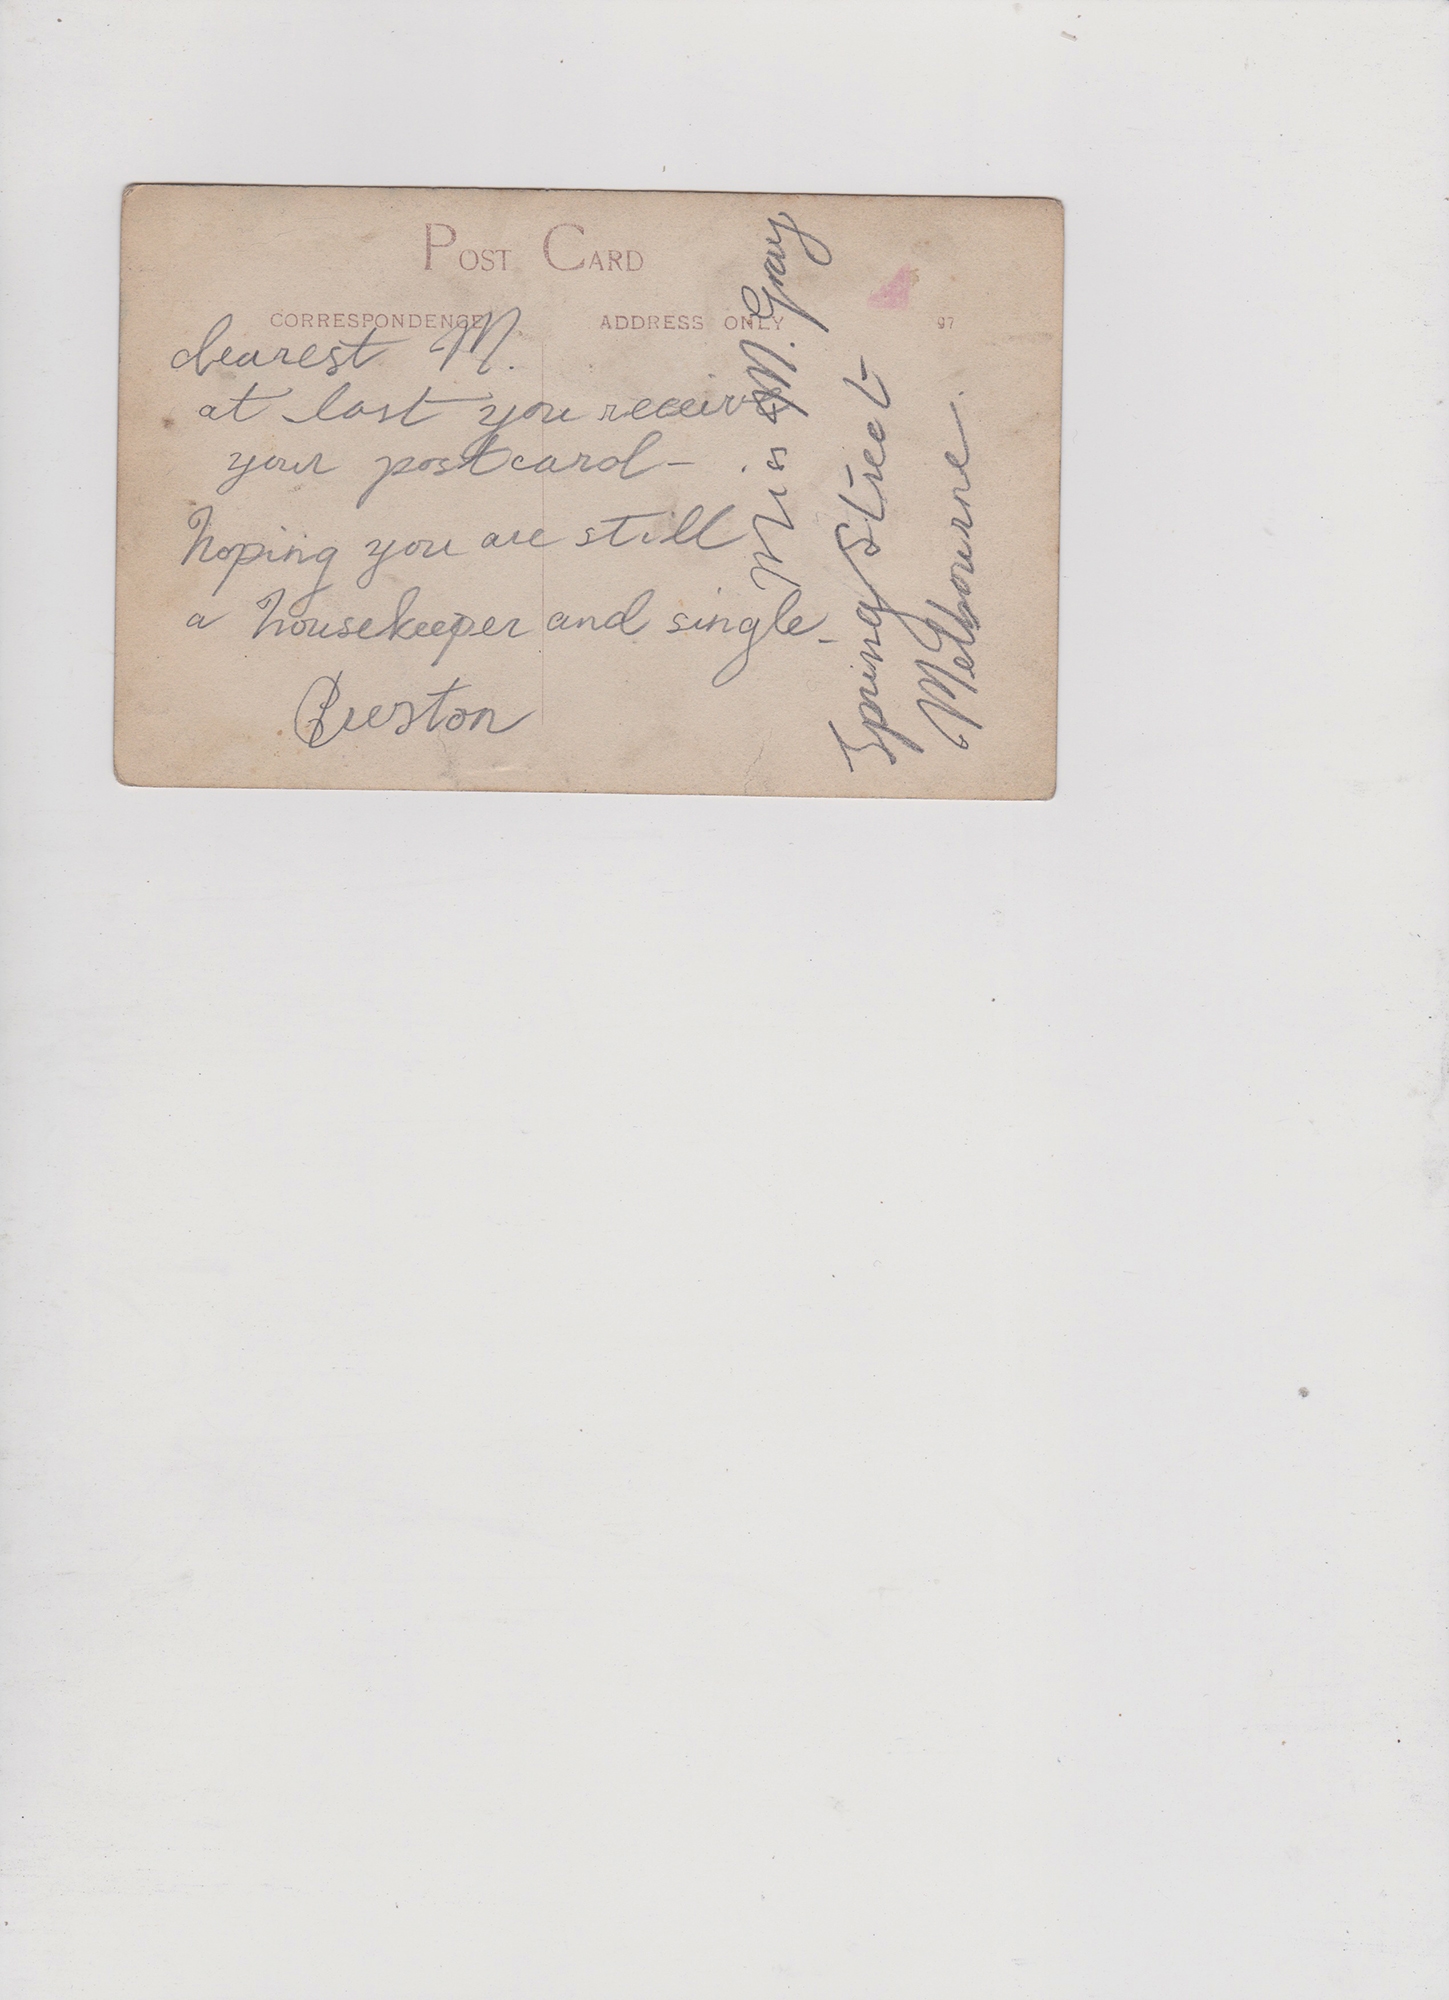 POST CARD
CORRESPONDENCE
ADDRESS ONLY
97
dearest M.
at last you receive
your postcard -
hoping you are still
a housekeeper and single -
Miss M. Gray
Spring Street
Melbourne.